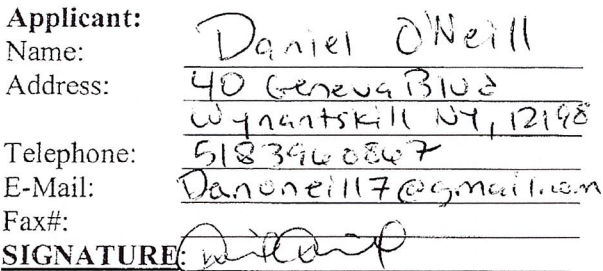 Applicant:
Name: Daniel O'Neill
Address: 40 Geneva Blvd
Wynantskill NY, 12198
Telephone: 5183960867
E-Mail: Danoneill7@gmail.com
Fax#:
SIGNATURE: